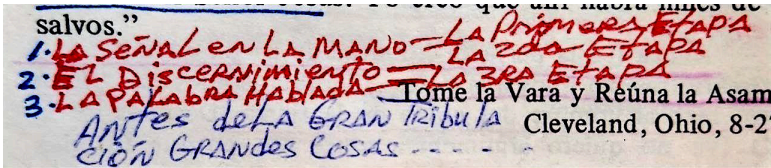 salvos.”
1. LA SEÑAL EN LA MANO = LA PRIMERA ETAPA
2. EL DISCERNIMIENTO = LA 2DA ETAPA
3. LA PALABRA HABLADA = LA 3RA ETAPA
Tome la Vara y Reúna la Asam
Cleveland, Ohio, 8-2
ANTES DE LA GRAN TRIBULA
CIÓN GRANDES COSAS - - - -